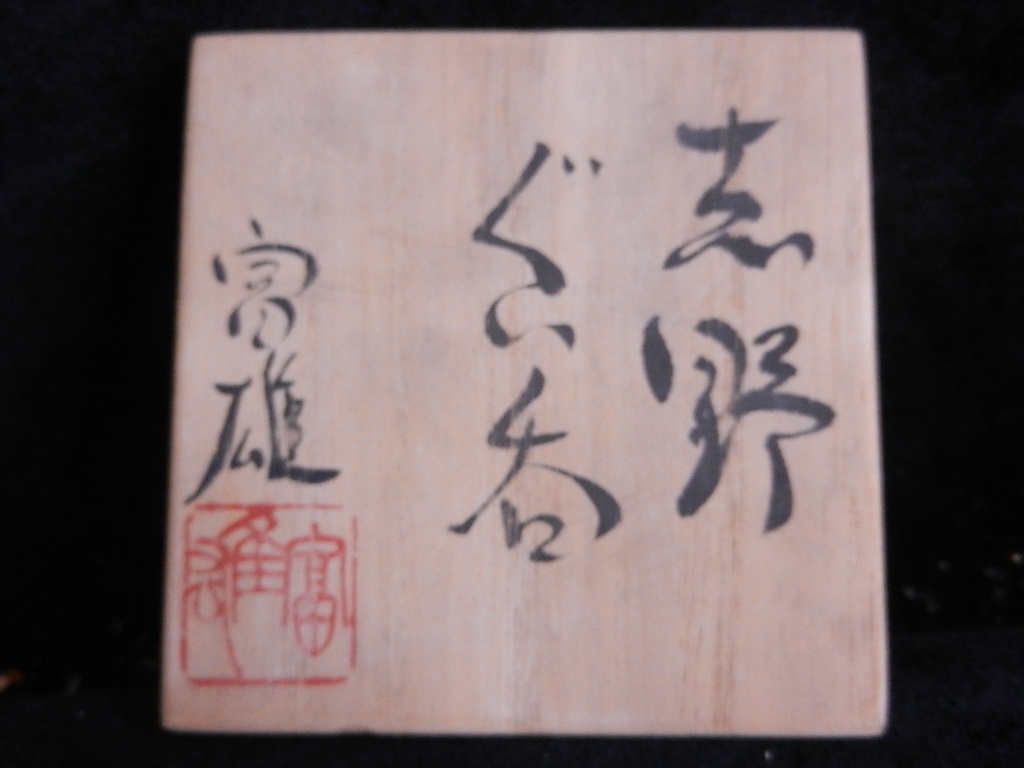 志野
ぐい呑
富雄
富雄